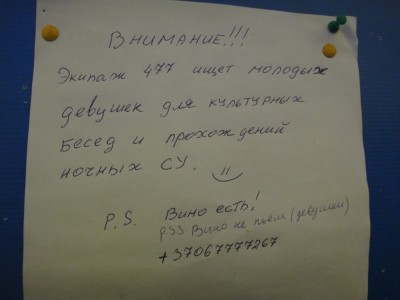 ВНИМАНИЕ!!!
Экипаж 477 ищет молодых
девушек для культурных
бесед и прохождений
ночных СУ.
P.S. Вино есть!
PSS Вино не пьем (девушки)
+37067777267